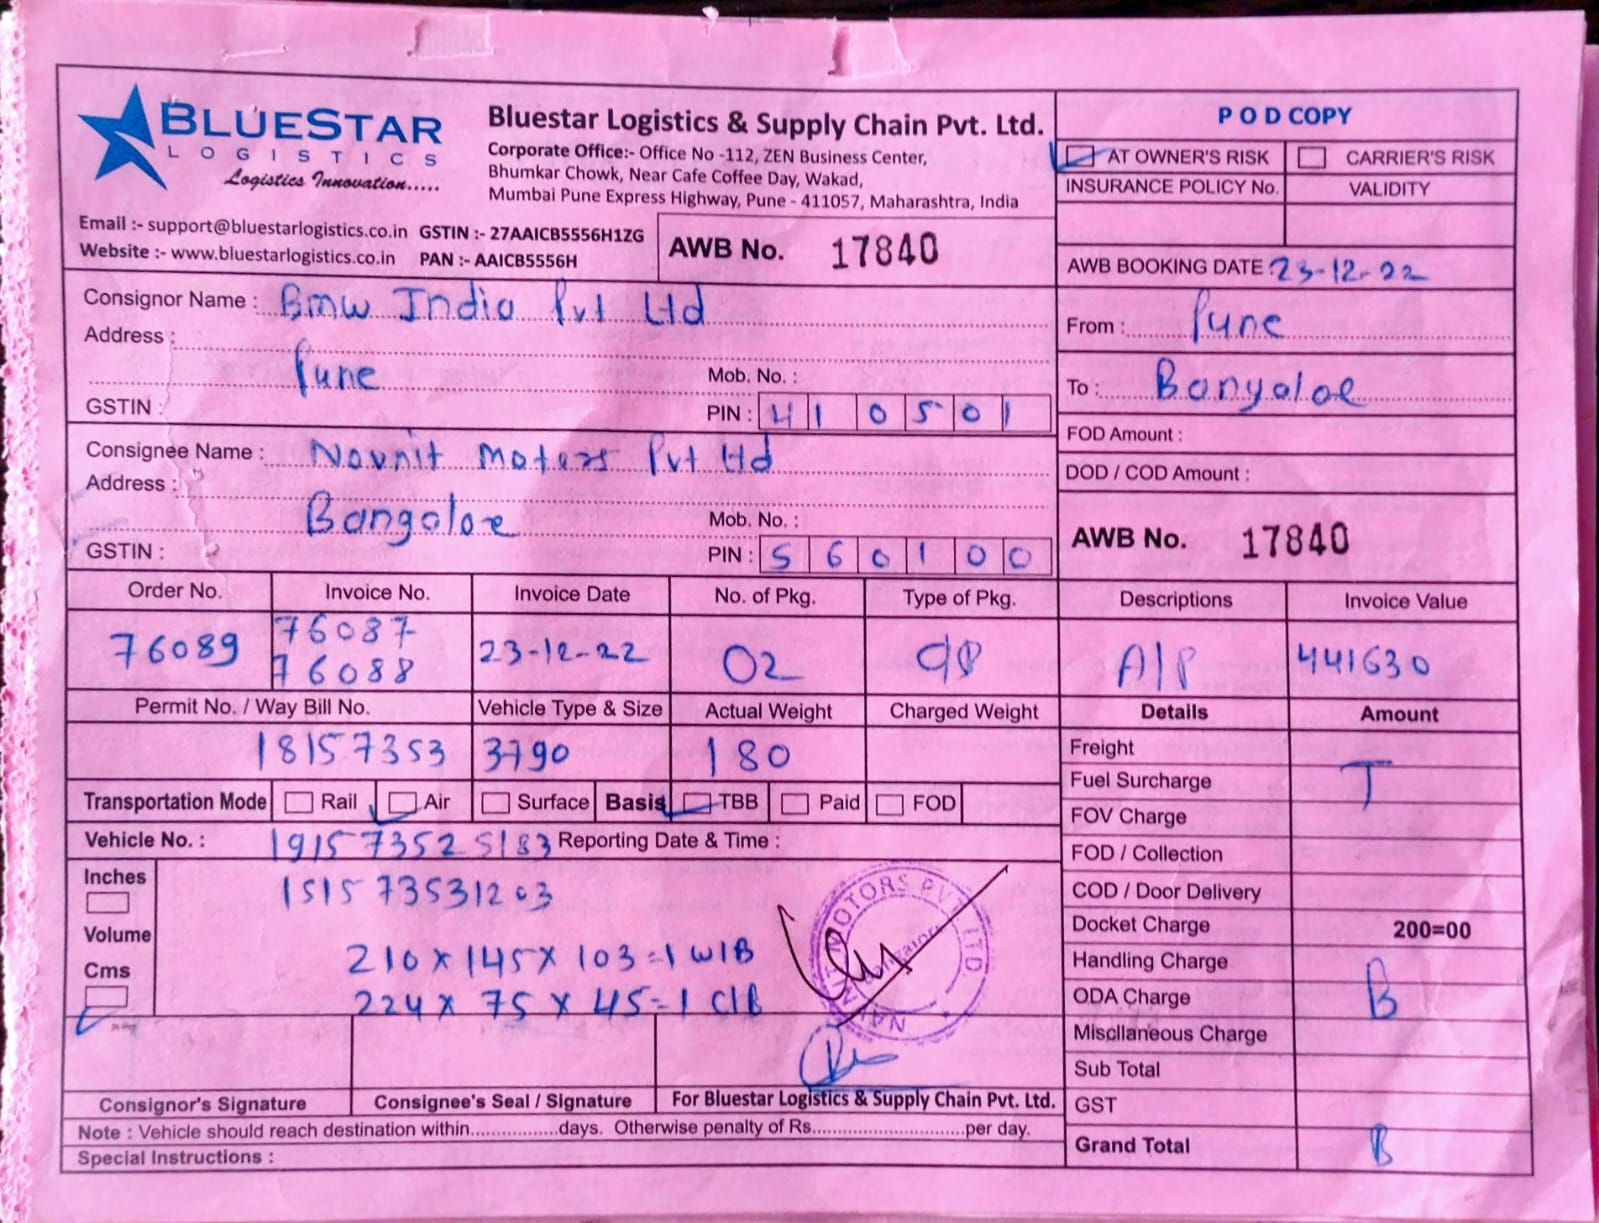 BLUESTAR
LOGISTICS
Logistics Innovation.....
Bluestar Logistics & Supply Chain Pvt. Ltd.
Corporate Office:- Office No -112, ZEN Business Center,
Bhumkar Chowk, Near Cafe Coffee Day, Wakad,
Mumbai Pune Express Highway, Pune - 411057, Maharashtra, India
Email :- support@bluestarlogistics.co.in GSTIN :- 27AAICB5556H1ZG
Website :- www.bluestarlogistics.co.in PAN :- AAICB5556H
AWB No. 17840
POD COPY
AT OWNER'S RISK CARRIER'S RISK
INSURANCE POLICY No. VALIDITY
AWB BOOKING DATE : 23-12-22
Consignor Name : Bmw India Pvt Ltd
Address :
Pune Mob. No. :
GSTIN : PIN : 410501
From : Pune
To : Bangaloe
FOD Amount :
DOD / COD Amount :
Consignee Name : Navnit Moters Pvt Ltd
Address :
Bangaloe Mob. No. :
GSTIN : PIN : 560100
AWB No. 17840
Order No. Invoice No. Invoice Date No. of Pkg. Type of Pkg. Descriptions Invoice Value
76089 76087 23-12-22 02 A/P 441630
76088
Permit No. / Way Bill No. Vehicle Type & Size Actual Weight Charged Weight Details Amount
18157353 3790 180
Freight
Fuel Surcharge T
FOV Charge
FOD / Collection
COD / Door Delivery
Docket Charge 200=00
Handling Charge
ODA Charge B
Miscllaneous Charge
Sub Total
GST
Grand Total B
Transportation Mode Rail Air Surface Basis TBB Paid FOD
Vehicle No. : 191573525183 Reporting Date & Time :
Inches
151573531203
Volume
210 x 145 x 103 = 1 W/B
Cms
224 x 75 x 45 = 1 C/B
NAVNIT MOTORS PVT. LTD.
Consignor's Signature Consignee's Seal / Signature For Bluestar Logistics & Supply Chain Pvt. Ltd.
Note : Vehicle should reach destination within.................days. Otherwise penalty of Rs............................per day.
Special Instructions :